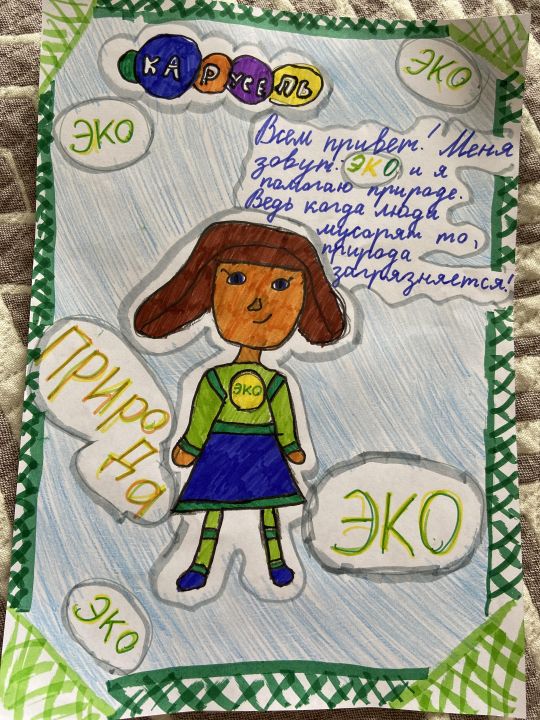 КАРУСЕЛЬ
ЭКО
ЭКО
Всем привет! Меня
зовут: ЭКО, и я
помогаю природе.
Ведь когда люди
мусорят то,
природа
загрязняется!
ПРИРО
ДА
ЭКО
ЭКО
ЭКО